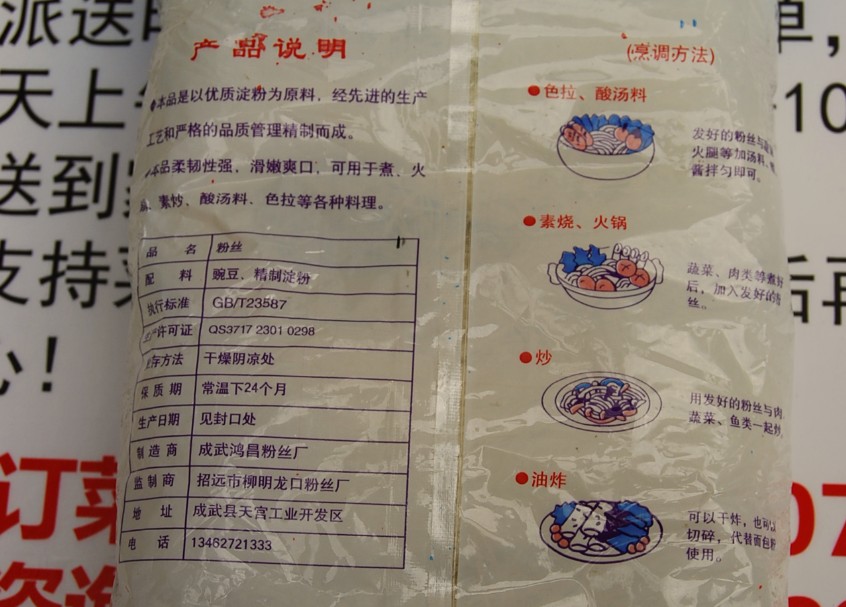 产品说明
◆本品是以优质淀粉为原料，经先进的生产
工艺和严格的品质管理精制而成。
本品柔韧性强，滑嫩爽口，可用于煮、火
素炒、酸汤料、色拉等各种料理。
品 名 粉丝
配 料 豌豆，精制淀粉
执行标准 GB/T23587
生产许可证 QS3717 2301 0298
贮存方法 干燥阴凉处
保质期 常温下24个月
生产日期 见封口处
制造商 成武鸿昌粉丝厂
监制商 招远市柳明龙口粉丝厂
地 址 成武县天宫工业开发区
电 话 13462721333
(烹调方法)
●色拉、酸汤料
发好的粉丝与蔬
火腿等加汤料、
酱拌匀即可。
●素烧、火锅
蔬菜、肉类等煮好
后，加入发好的粉
丝。
●炒
用发好的粉丝与肉
蔬菜、鱼类一起炒
●油炸
可以干炸，也可以
切碎，代替面包粉
使用。
派送时
天上午
送到
支持菜
心！
订菜
咨询
单，
10
后再
07